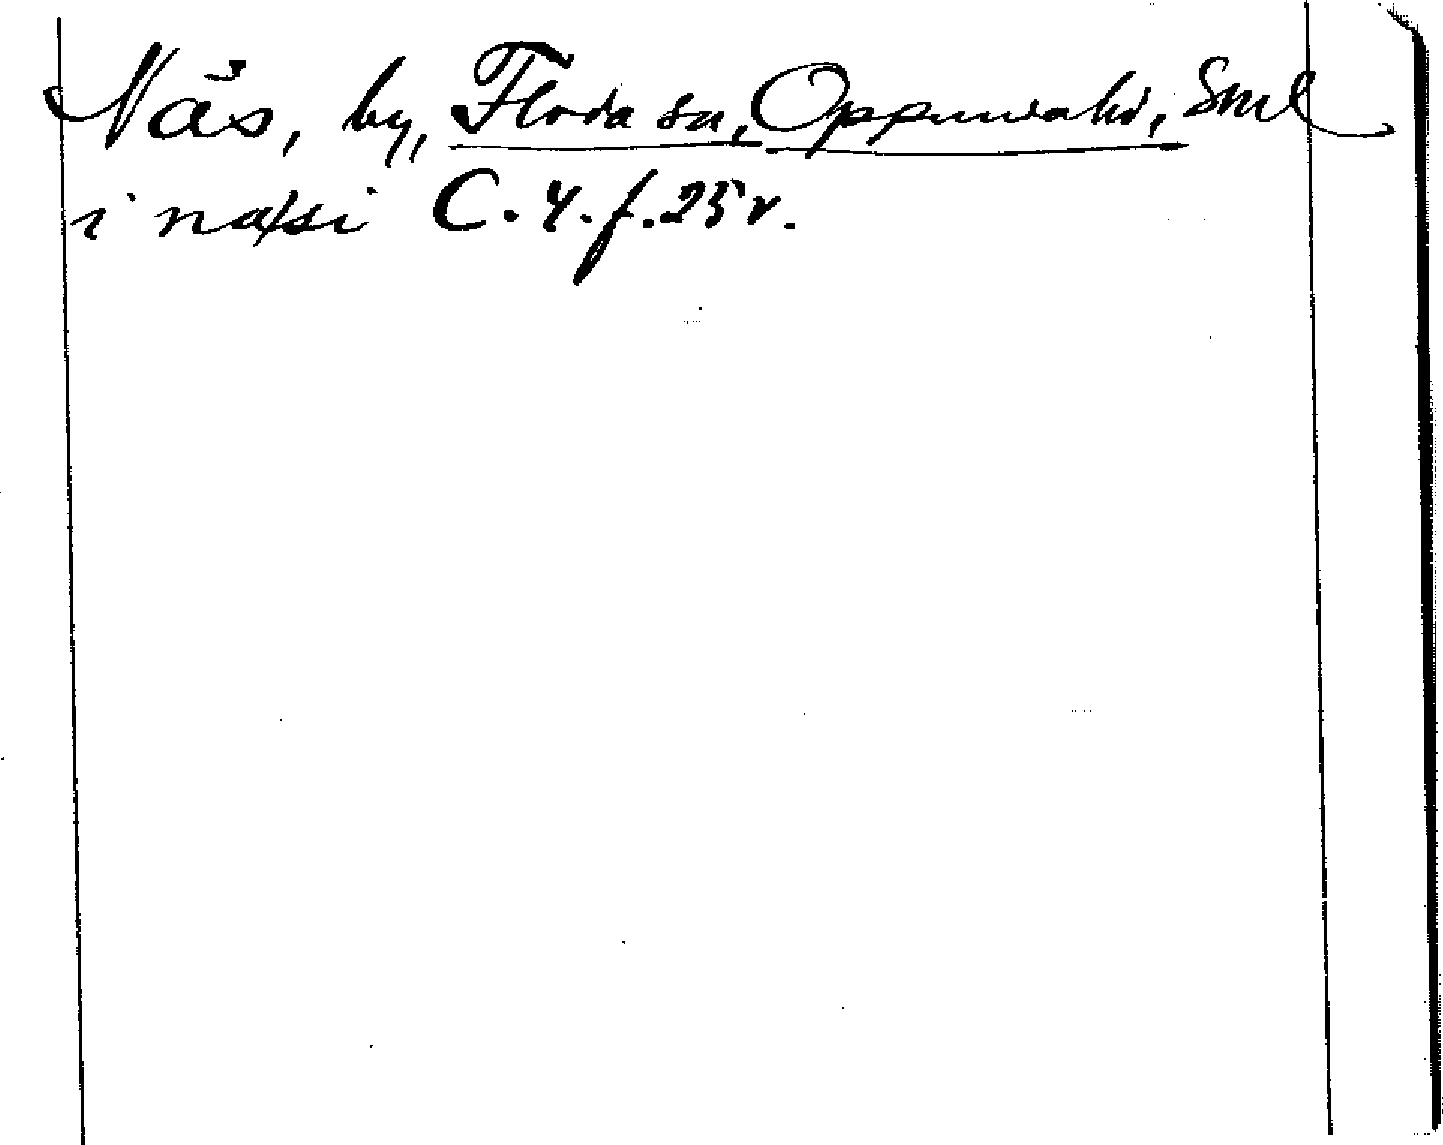 Näs, by, Floda sn, Oppunda hd, Sml
i næsi C. 4. f. 25 v.